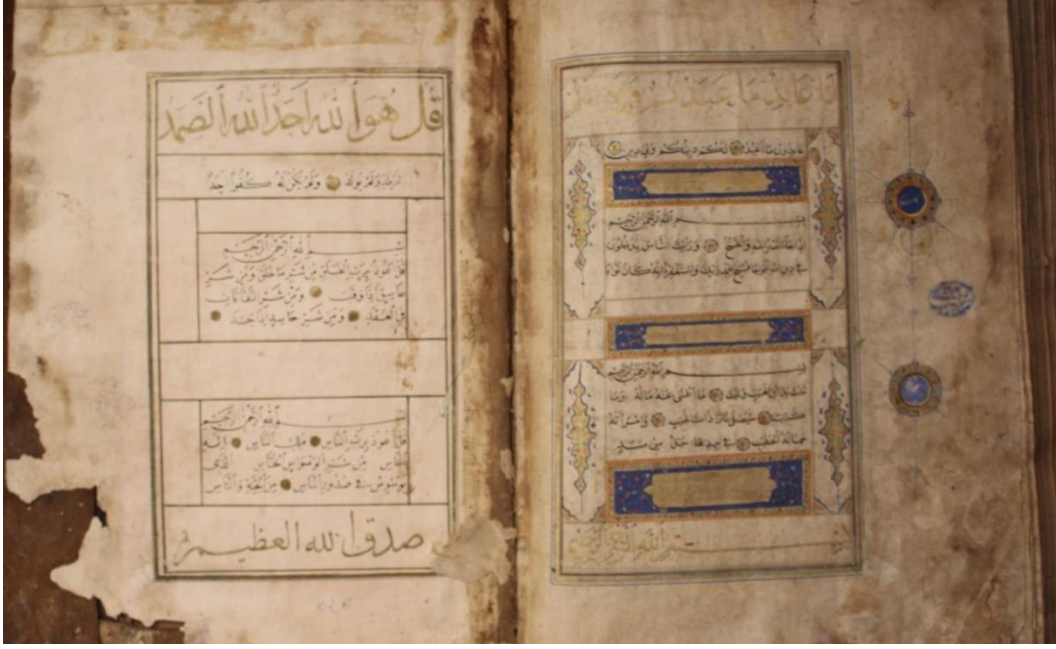 نا عابد ما عبدتم ولا انتم
عابدون ما اعبد لكم دينكم ولي دين
بسم الله الرحمن الرحيم
اذا جاء نصر الله والفتح ورايت الناس يدخلون
في دين الله افواجا فسبح بحمد ربك واستغفره انه كان توابا
بسم الله الرحمن الرحيم
تبت يدا ابي لهب وتب ما اغنى عنه ماله وما
كسب سيصلى نارا ذات لهب وامراته
حمالة الحطب في جيدها حبل من مسد
بسم الله الرحمن الرحيم
قل هو الله احد الله الصمد
لم يلد ولم يولد ولم يكن له كفوا احد
بسم الله الرحمن الرحيم
قل اعوذ برب الفلق من شر ما خلق ومن شر
غاسق اذا وقب ومن شر النفاثات
في العقد ومن شر حاسد اذا حسد
بسم الله الرحمن الرحيم
قل اعوذ برب الناس ملك الناس اله
الناس من شر الوسواس الخناس الذى
يوسوس في صدور الناس من الجنة والناس
صدق الله العظيم